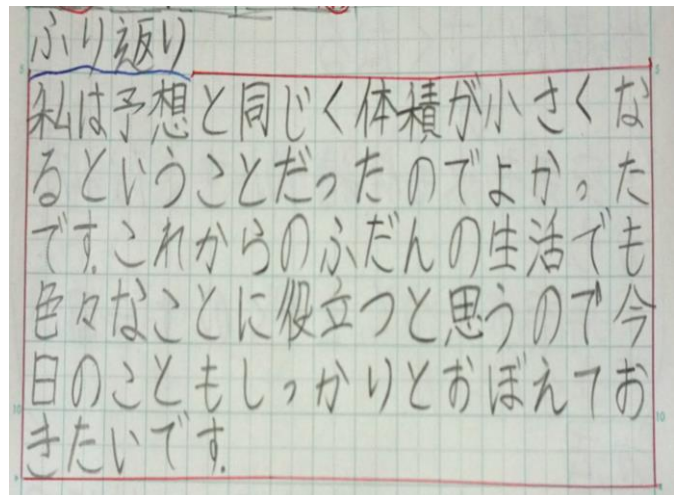 ふり返り
私は予想と同じく体積が小さくな
るということだったのでよかった
です。これからのふだんの生活でも
色々なことに役立つと思うので今
日のこともしっかりとおぼえてお
きたいです。